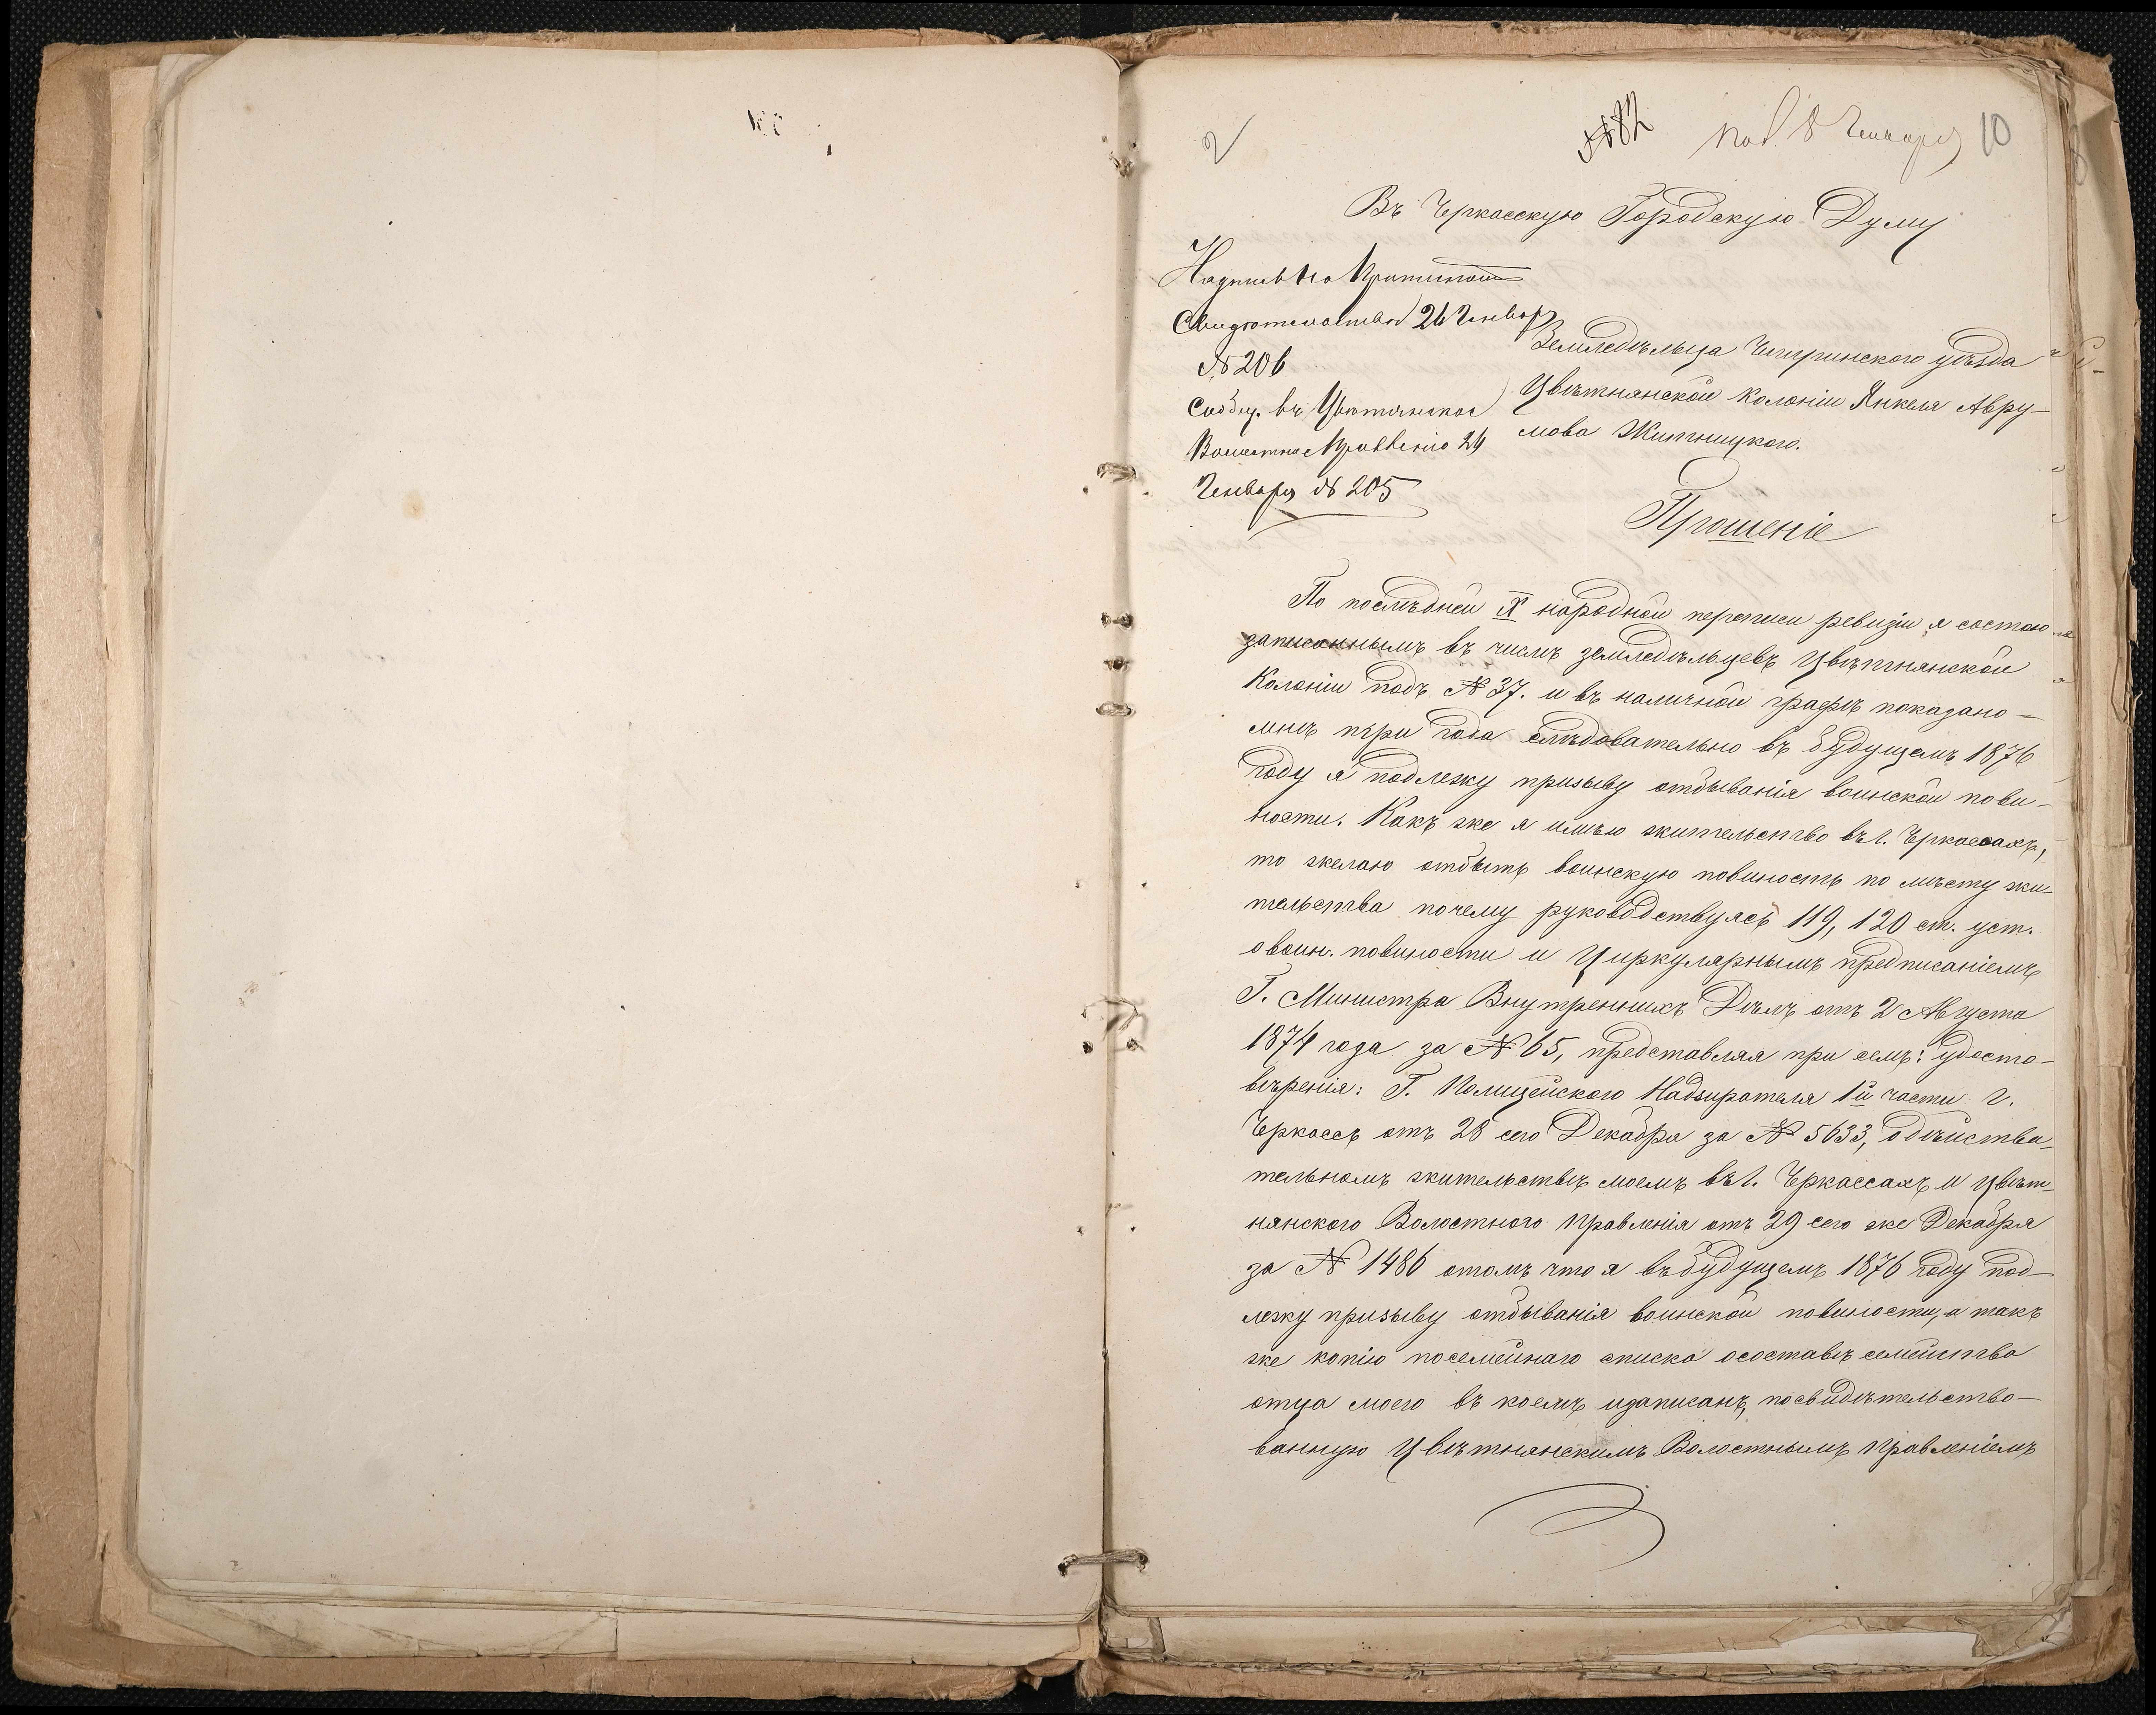 № 82 под. 8 Генваря 10
Въ Черкасскую Городскую Думу
Надпись на
Свидѣтельства 26 Генваря
№ 206
Сообщ. въ Цвѣтнянское
Волостное Правленіе 26
Генваря № 205
Земледѣльца Чигринского уѣзда
Цвѣтнянской Колоніи Янкеля Авру-
мова Житницкого.
Прошеніе
По послѣдней X народной переписи ревизіи я состою
записаннымъ въ числѣ земледѣльцевъ Цвѣтнянской
Колоніи подъ № 37. и въ наличной графѣ показано
мнѣ три года слѣдовательно въ будущемъ 1876
году я подлежу призыву отбыванія воинской пови-
ности. Какъ же я имѣю жительство въ г. Черкассахъ,
то желаю отбыть воинскую повиность по мѣсту жи-
тельства почему руководствуясь 119, 120 ст. уст.
о воин. повиности и Циркулярнымъ предписаніемъ
Г. Министра Внутреннихъ Дѣлъ отъ 2 Августа
1874 года за № 65, представляя при семъ: удосто-
вѣренія: Г. Полицейского Надзирателя 1й части г.
Черкассъ отъ 28 сего Декабря за № 5633, о дѣйстви-
тельномъ жительствѣ моемъ въ г. Черкассахъ и Цвѣт-
нянского Волостного Правленія отъ 29 сего же Декабря
за № 1486 отомъ что я въ будущемъ 1876 году под-
лежу призыву отбыванія воинской повиности, а такъ
же копію посемейнаго списка осоставѣ семейства
отца моего въ коемъ изаписанъ, посвидѣтельство-
ванную Цвѣтнянскимъ Волостнымъ Правленіемъ